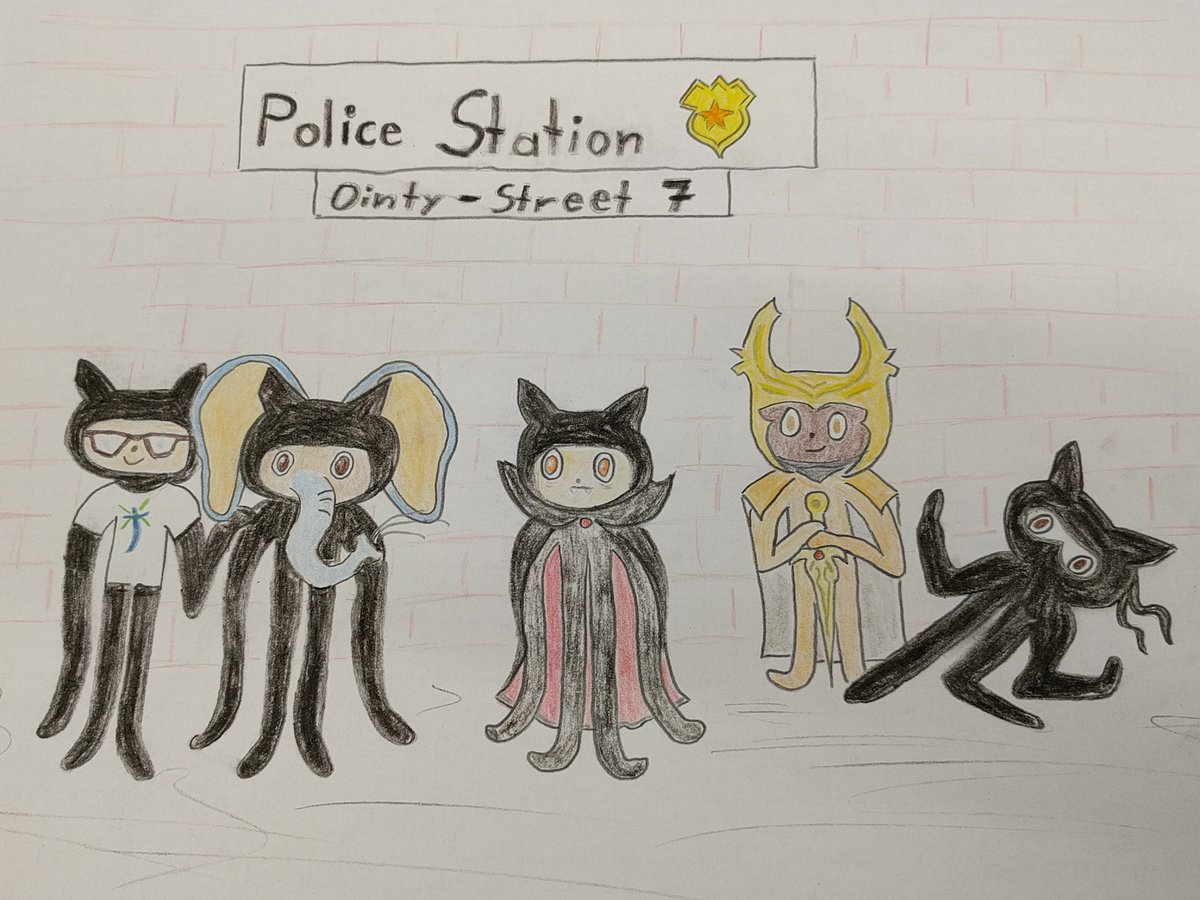 Police Station
Ointy-Street 7